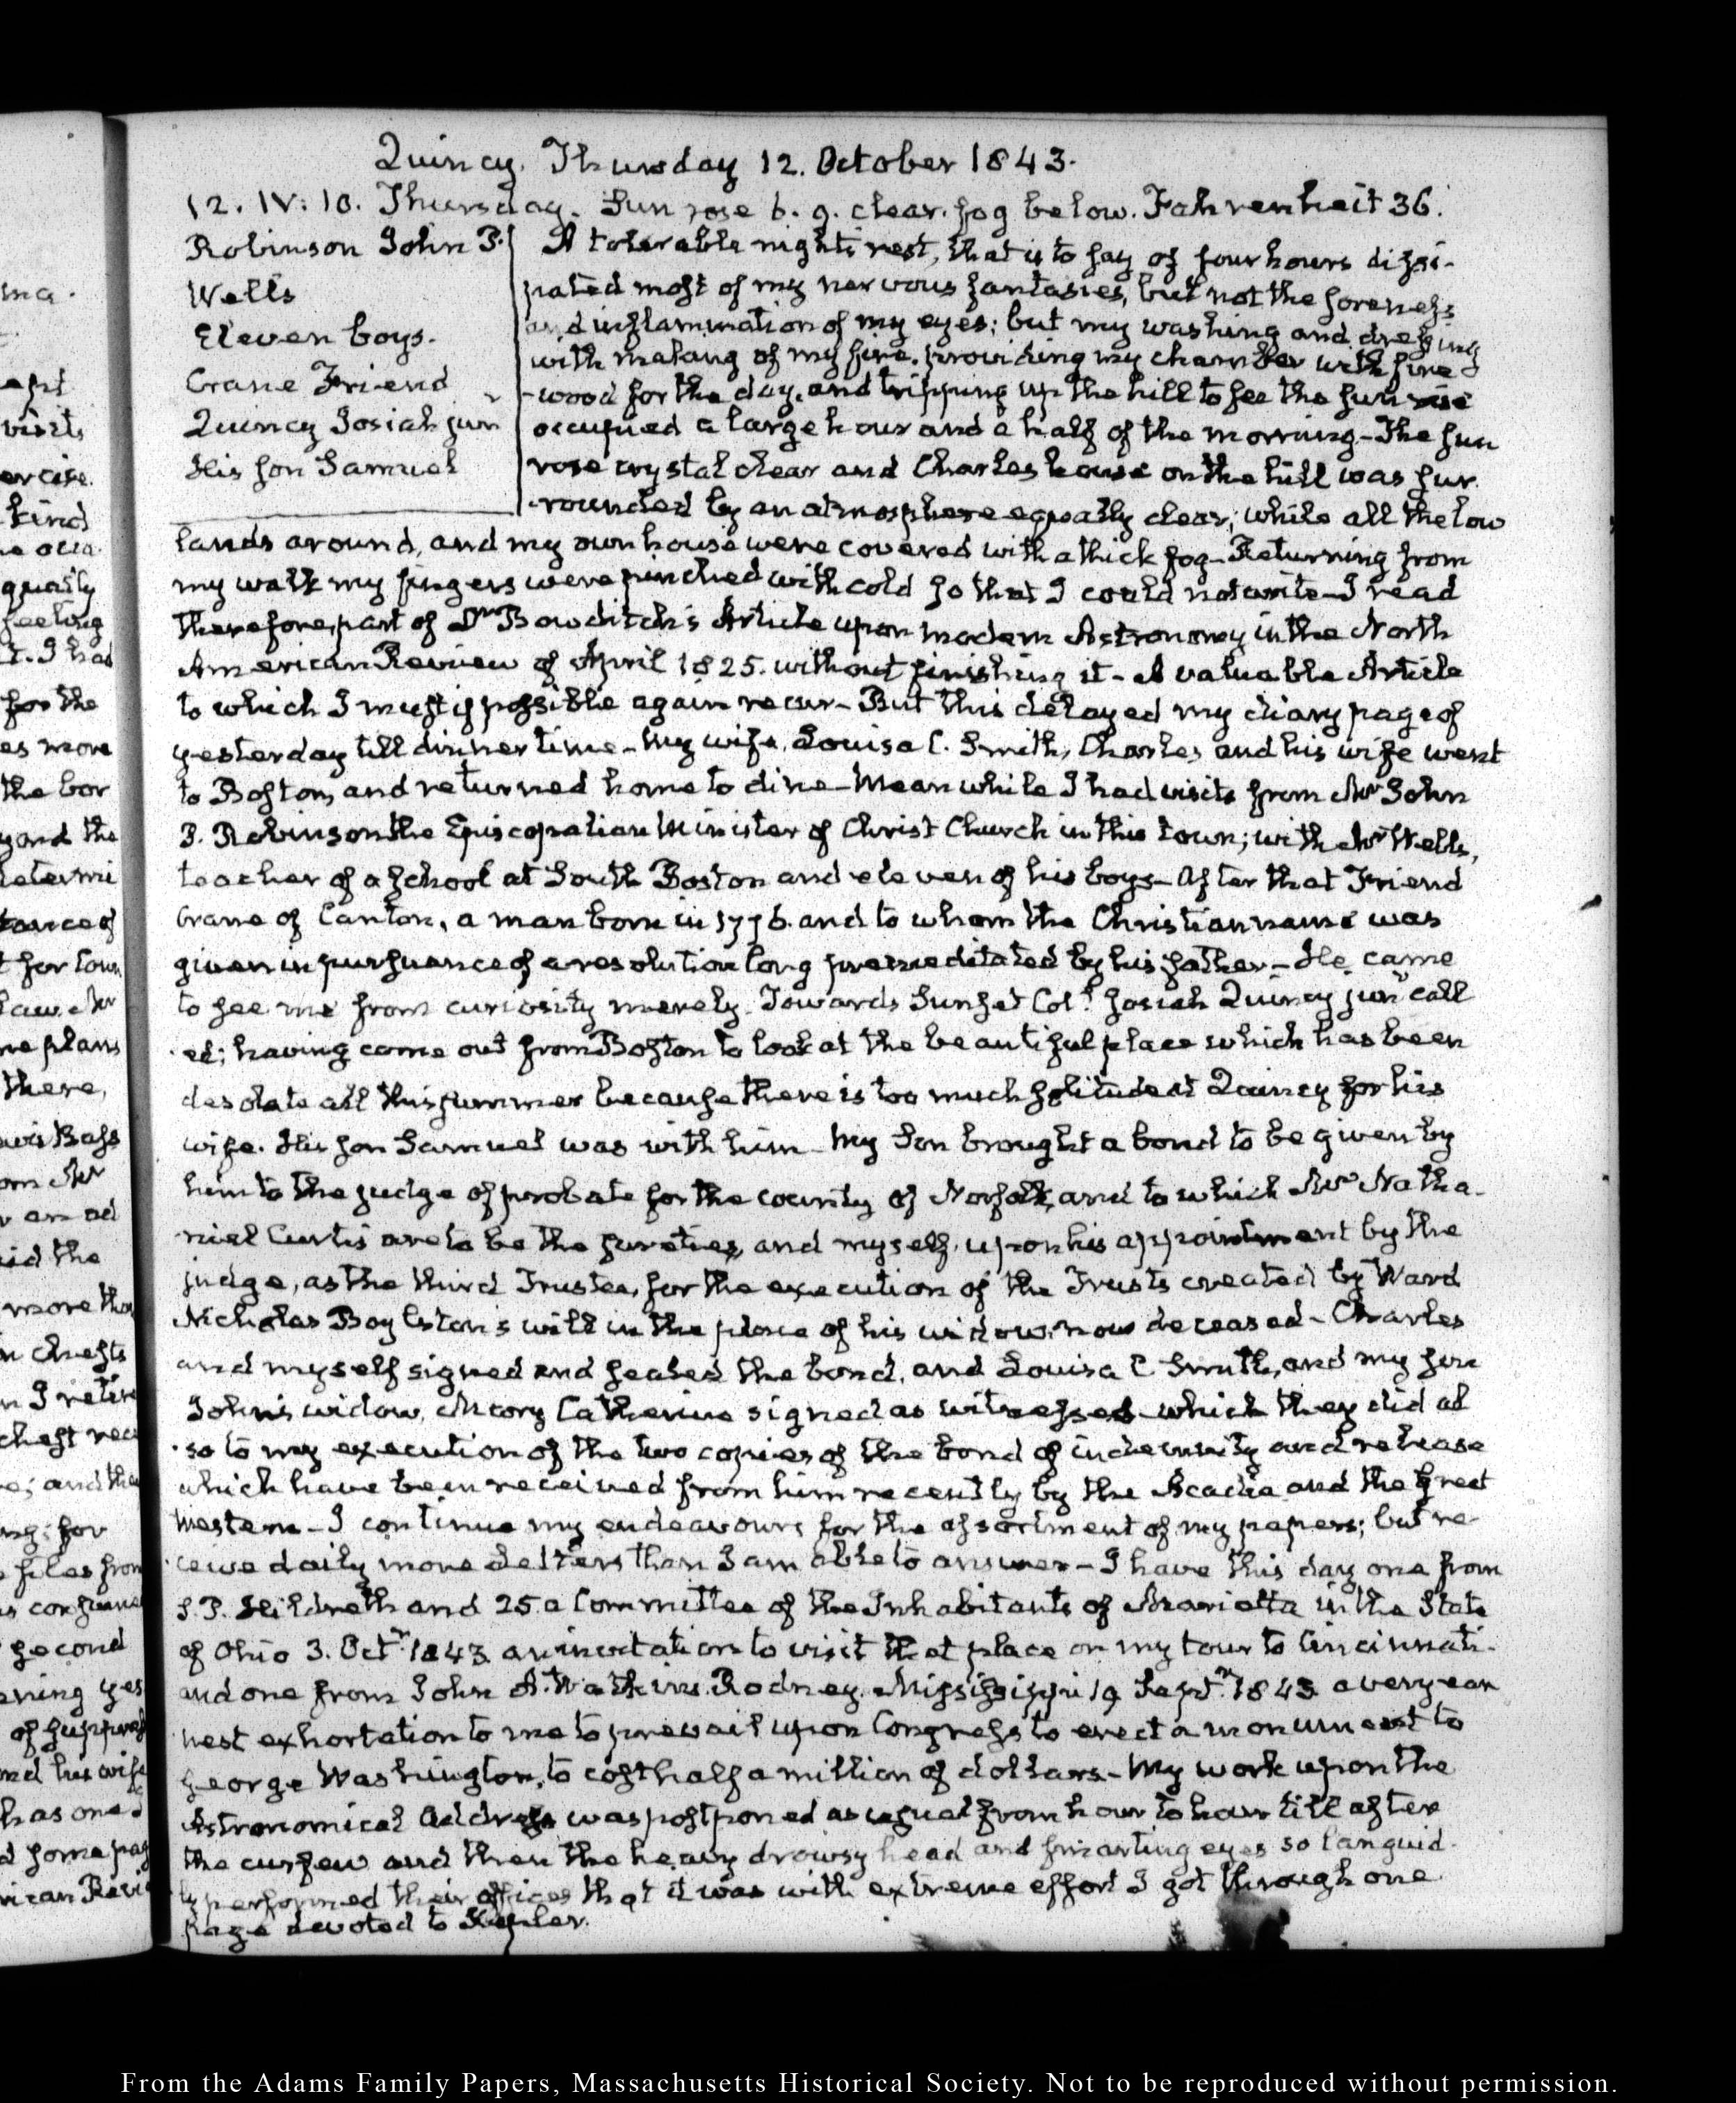 Quincy. Thursday 12. October 1843.
12. IV: 10. Thursday. Sun rose 6. 9. clear. fog below. Fahrenheit 36.
Robinson John P.
Wells
Eleven boys.
Crane Friend
Quincy Josiah jun
His son Samuel
A tolerable night's rest, that is to say of four hours dissi-
pated most of my nervous fantasies, but not the soreness
and inflammation of my eyes; but my washing and dressing
with making of my fire, providing my chamber with fire
-wood for the day, and tripping up the hill to see the sun rise
occupied a large hour and a half of the morning- The sun
rose crystal clear and Charles house on the hill was sur-
-rounded by an atmosphere equally clear; while all the low
lands around, and my own house were covered with a thick fog- Returning from
my walk my fingers were pinched with cold so that I could not write- I read
therefore, part of Dr Bowditch's Article upon modern Astronomy in the North
American Review of April 1825. without finishing it- A valuable Article
to which I must if possible again recur- But this delayed my diary page of
yesterday till dinner time- My wife, Louisa C. Smith, Charles and his wife went
to Boston, and returned home to dine- Mean while I had visits from Mr John
P. Robinson the Episcopalian Minister of Christ Church in this town; with Mr Wells,
teacher of a school at South Boston and eleven of his boys- After that Friend
Crane of Canton, a man born in 1776. and to whom the Christian name was
given in pursuance of a resolution long premeditated by his father- He came
to see me from curiosity merely. Towards Sunset Col.l Josiah Quincy junr call
-ed; having come out from Boston to look at the beautiful place which has been
desolate all this summer because there is too much solitude at Quincy for his
wife. His son Samuel was with him- My Son brought a bond to be given by
him to the judge of probate for the county of Norfolk, and to which Mr Natha-
niel Curtis are to be the sureties, and myself, upon his appointment by the
judge, as the third Trustee, for the execution of the Trusts created by Ward
Nicholas Boylston's will in the place of his widow, now deceased- Charles
and myself signed and sealed the bond, and Louisa C Smith, and my son
John's widow, Mary Catherine signed as witnesses which they did al
-so to my execution of the two copies of the bond of indemnity and release
which have been received from him recently by the Acadia and the Great
Western- I continue my endeavours for the assortment of my papers; but re-
ceive daily more Letters than I am able to answer- I have this day one from
S. P. Hildreth and 25. a Committee of the Inhabitants of Marietta in the State
of Ohio 3. Octr 1843 an invitation to visit that place on my tour to Cincinnati-
and one from John A. Watkins. Rodney. Mississippi 19 Septr 1843 a very ear
nest exhortation to me to prevail upon Congress to erect a monument to
George Washington, to cost half a million of dollars- My work upon the
Astronomical Address was postponed as usual from hour to hour till after
the curfew and then the heavy drowsy head and smarting eyes so languid-
ly performed their offices that it was with extreme effort I got through one
page devoted to Kepler.
ma.
visits
ercise.
kind
quality
feeling
I had
for the
es more
the bor
and the
determi
tance of
for town
saw Mr
me plans
there,
Bass
Mr
an ad
the
more than
chests
chest
and the
for
files from
second
yes
has one
some
From the Adams Family Papers, Massachusetts Historical Society. Not to be reproduced without permission.